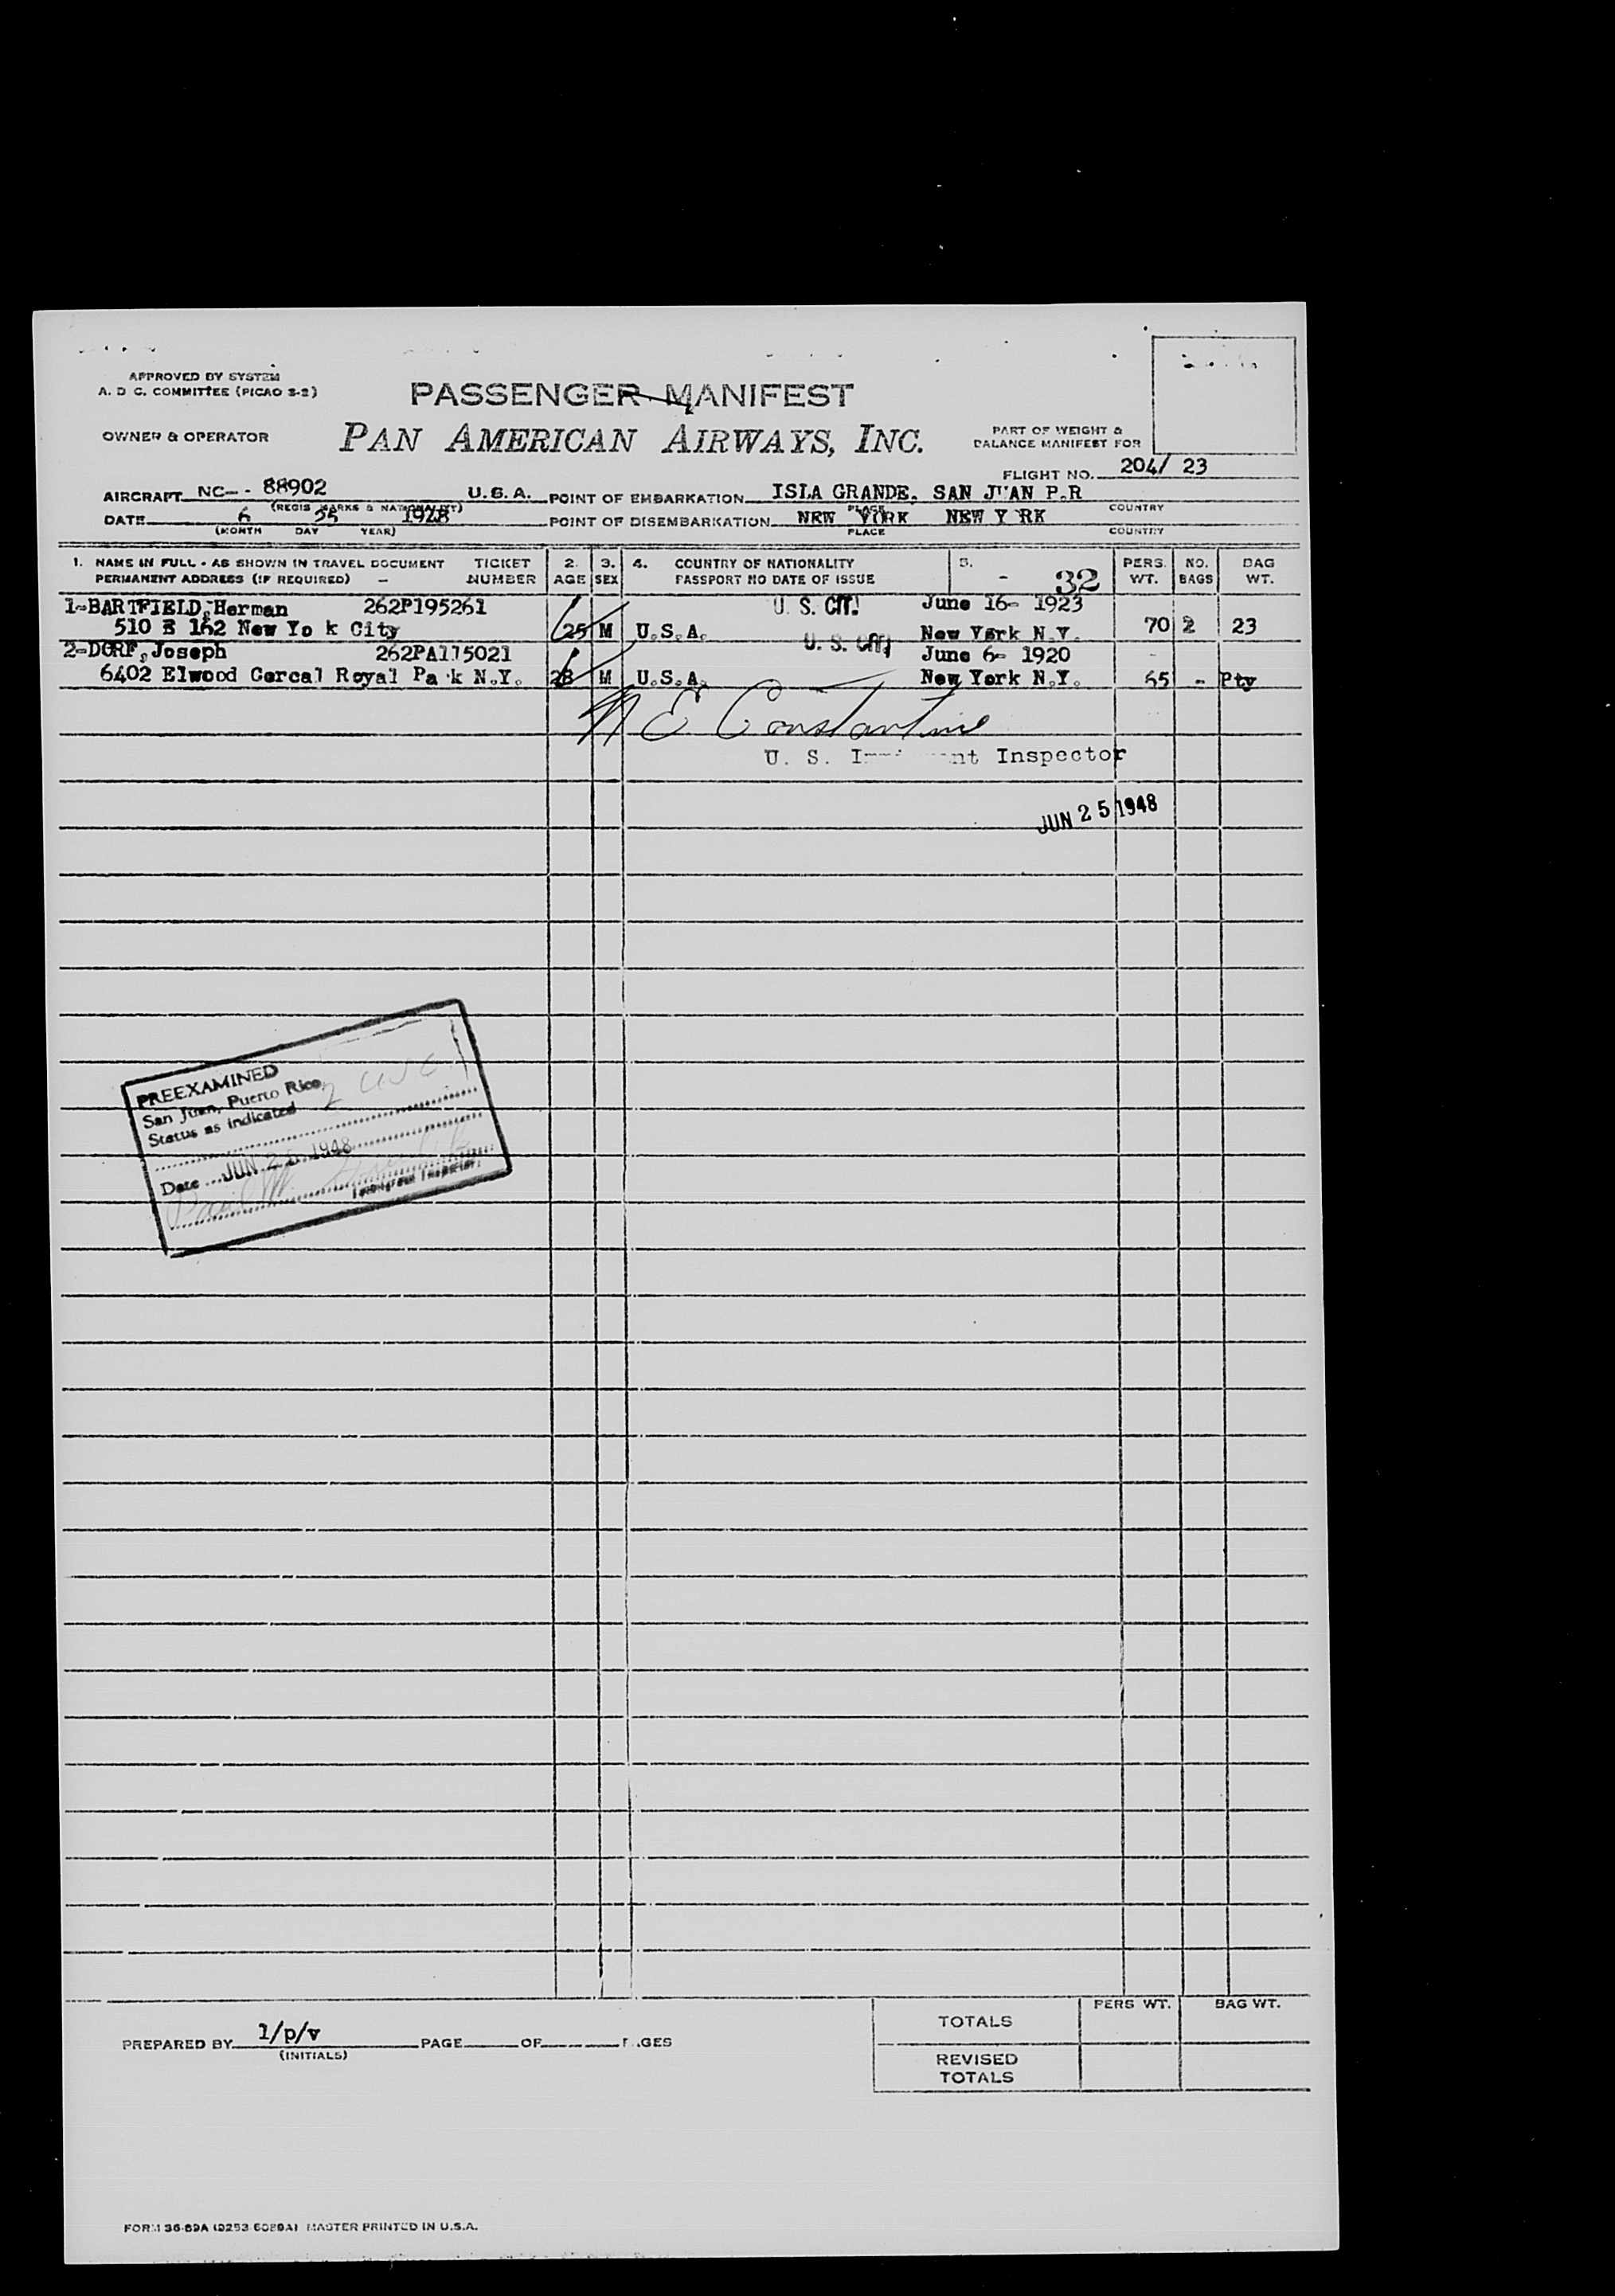 APPROVED BY SYSTEM
A. D C. COMMITTEE (PICAO 3-2)
PASSENGER MANIFEST
OWNER & OPERATOR
PAN AMERICAN AIRWAYS, INC.
PART OF WEIGHT &
BALANCE MANIFEST FOR
FLIGHT NO. 204/ 23
AIRCRAFT NC-- 88902 U.S.A. POINT OF EMBARKATION ISLA GRANDE, SAN JUAN P.R
(REGIS MARKS & NATIONALITY) PLACE COUNTRY
DATE 6 25 1948 POINT OF DISEMBARKATION NEW YORK NEW Y RK
(MONTH DAY YEAR) PLACE COUNTRY
1. NAME IN FULL - AS SHOWN IN TRAVEL DOCUMENT TICKET 2. 3. 4. COUNTRY OF NATIONALITY 5. PERS. NO. BAG
PERMANENT ADDRESS (IF REQUIRED) - NUMBER AGE SEX PASSPORT NO DATE OF ISSUE - 32 WT. BAGS WT.
1-BARTFIELD, Herman 262P195261 U. S. CIT. June 16- 1923
510 E 162 New Yo k City 25 M U.S.A. New York N.Y. 70 2 23
2-DORF, Joseph 262PA115021 U. S. CIT. June 6- 1920
6402 Elwood Corcal Royal Pa k N.Y. 28 M U.S.A. New York N.Y. 65 - Pty
N E Constantine
U. S. Inspector
JUN 25 1948
PREEXAMINED
San Juan, Puerto Rico
Status as indicated 2 USC
Date JUN 25 1948
Paul W.
Immigrant Inspector
PERS WT. BAG WT.
TOTALS
PREPARED BY 1/p/v PAGE OF GES
(INITIALS)
REVISED
TOTALS
FORM 36-89A MASTER PRINTED IN U.S.A.